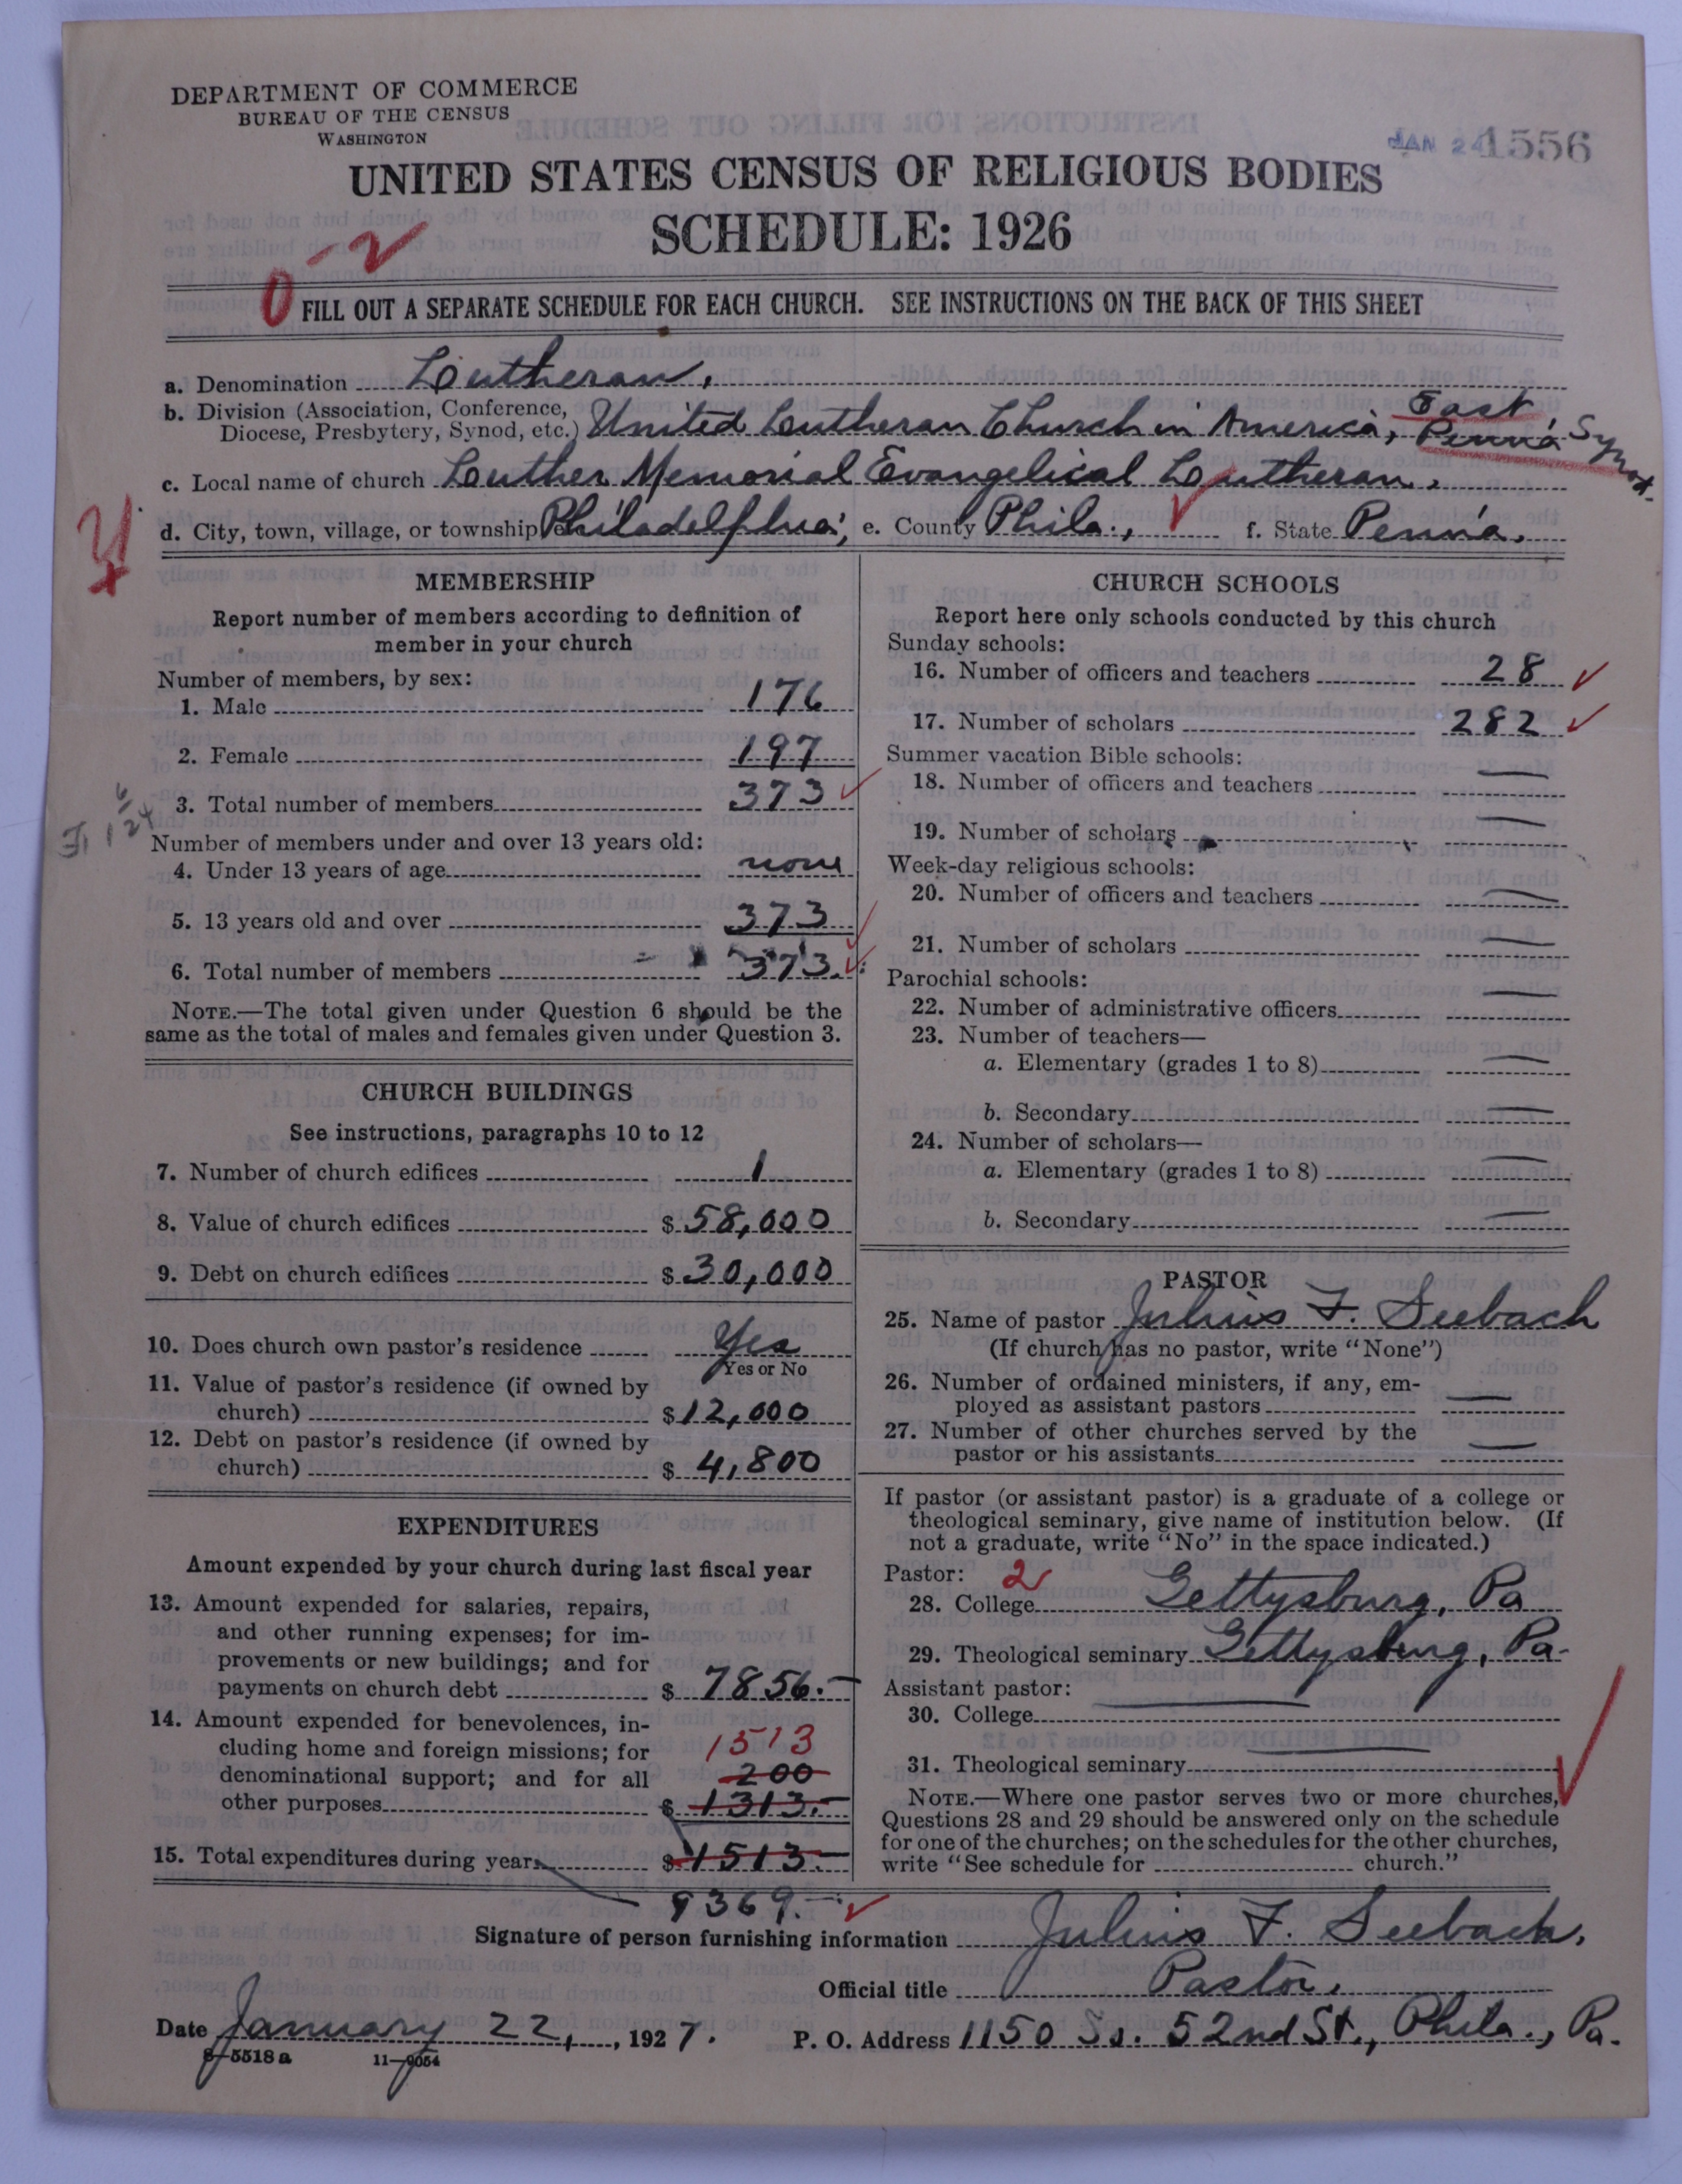 DEPARTMENT OF COMMERCE
BUREAU OF THE CENSUS
WASHINGTON
JAN 24 1556
UNITED STATES CENSUS OF RELIGIOUS BODIES
SCHEDULE: 1926
0-2
FILL OUT A SEPARATE SCHEDULE FOR EACH CHURCH. SEE INSTRUCTIONS ON THE BACK OF THIS SHEET
a. Denomination Lutheran.
b. Division (Association, Conference, Diocese, Presbytery, Synod, etc.) United Lutheran Church in America, East Penn'a Synod.
c. Local name of church Luther Memorial Evangelical Lutheran.
d. City, town, village, or township Philadelphia; e. County Phila., f. State Penn'a.
MEMBERSHIP
Report number of members according to definition of
member in your church
Number of members, by sex:
1. Male 176
2. Female 197
3. Total number of members 373
Number of members under and over 13 years old:
4. Under 13 years of age none
5. 13 years old and over 373
6. Total number of members 373.
NOTE.—The total given under Question 6 should be the
same as the total of males and females given under Question 3.
CHURCH BUILDINGS
See instructions, paragraphs 10 to 12
7. Number of church edifices 1
8. Value of church edifices $ 58,000
9. Debt on church edifices $ 30,000
10. Does church own pastor's residence Yes
Yes or No
11. Value of pastor's residence (if owned by
church) $ 12,000
12. Debt on pastor's residence (if owned by
church) $ 4,800
EXPENDITURES
Amount expended by your church during last fiscal year
13. Amount expended for salaries, repairs,
and other running expenses; for im-
provements or new buildings; and for
payments on church debt $ 7856.-
14. Amount expended for benevolences, in-
cluding home and foreign missions; for 1513
denominational support; and for all 200
other purposes $ 1313.-
15. Total expenditures during year $ 1513.-
9369.-
CHURCH SCHOOLS
Report here only schools conducted by this church
Sunday schools:
16. Number of officers and teachers 28
17. Number of scholars 282
Summer vacation Bible schools:
18. Number of officers and teachers —
19. Number of scholars —
Week-day religious schools:
20. Number of officers and teachers —
21. Number of scholars —
Parochial schools:
22. Number of administrative officers —
23. Number of teachers—
a. Elementary (grades 1 to 8) —
b. Secondary —
24. Number of scholars—
a. Elementary (grades 1 to 8) —
b. Secondary —
PASTOR
25. Name of pastor Julius F. Seebach
(If church has no pastor, write "None")
26. Number of ordained ministers, if any, em-
ployed as assistant pastors —
27. Number of other churches served by the
pastor or his assistants —
If pastor (or assistant pastor) is a graduate of a college or
theological seminary, give name of institution below. (If
not a graduate, write "No" in the space indicated.)
Pastor: 2
28. College Gettysburg, Pa
29. Theological seminary Gettysburg, Pa.
Assistant pastor:
30. College —
31. Theological seminary —
NOTE.—Where one pastor serves two or more churches,
Questions 28 and 29 should be answered only on the schedule
for one of the churches; on the schedules for the other churches,
write "See schedule for church."
Signature of person furnishing information Julius F. Seebach.
Official title Pastor.
Date January 22, 1927. P. O. Address 1150 So. 52nd St., Phila., Pa.
8—5518 a 11—9054